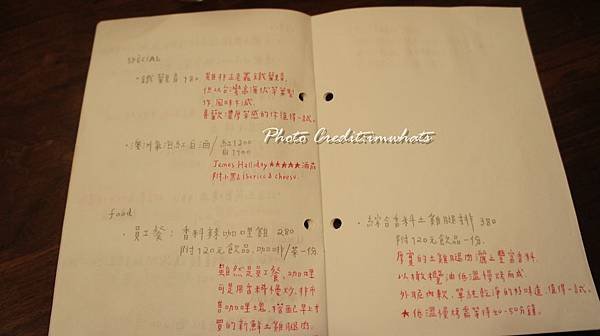 SPECIAL
・鐵觀音 180
雖非正忠義鐵觀音,
但以台灣高海拔茶葉製
作,風味不減,
喜歡濃厚茶感的你值得一試。
・澳洲氣泡紅白酒/紅1200
白1100
James Halliday ★★★★★酒莊
附小點iberico & cheese.
food
・員工餐:香料辣咖哩雞 280
附120元飲品,咖啡/茶一份.
雖然是員工餐,咖哩
可是用香料慢炒,非市
售咖哩塊,搭配早上才
買的新鮮土雞腿肉.
・綜合香料土雞腿排 380
附120元飲品一份.
厚實的土雞腿肉灑上豐富香料,
以橄欖油低溫慢烤而成.
外脆內軟,單純乾淨的好味道,值得一試。
★低溫慢烤需等待40-50分鐘.
Photo Credit:imwhats